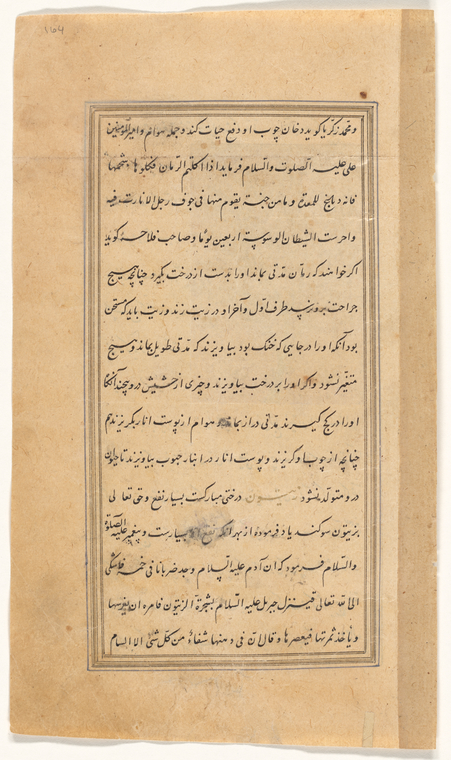 ۱۶۴
و محمد زکریا کوید دخان چوب او دفع حیات کند و جمله هوام و امیر المؤمنین
علی علیه الصلوت والسلام فرماید اذا اکلتم الرمان فکلوها بشحمها
فانه دباغ للمعدة و ما من حبة یقوم منها فی جوف رجل الا انارت قلبه
واخرست الشیطان الوسوسة اربعین یوما و صاحب فلاحه کوید
اکر خواهند که رمان مدتی بماند اورا بدست از درخت بکیرد چنانچه هیچ
جراحت نرسد طرف اول و آخر او در زفت زند و زفت باید که سخن
بود آنکه اورا در جایی که خنک بود بیاویزند که مدتی طویل بماند و هیچ
متغیر نشود واکر اورا بر درخت بیاویزند و چیزی از حشیش درو پیچند آنکاه
اورا در کج کیرند مدتی دراز بماند و هوام از پوست انار بکریزند هم
چنانچه از چوب او کریزند و پوست انار در انبار حبوب بیاویزند تا حیوان
درو متولد نشود زیتون درختی مبارکست بسیار نفع و حق تعالی
بزیتون سوکند یاد فرموده از بهر آنکه نفع او بسیارست و پیغمبر علیه الصلوة
والسلام فرمود که ان آدم علیه السلام وجد ضربانا فی جسمه فاشتکی
الی الله تعالی فینزل جبریل علیه السلام بشجرة الزیتون فامره ان یغرسها
و یأخذ ثمرتها فیعصرها و قال ان فی دهنها شفاء من کل شئ الا السام